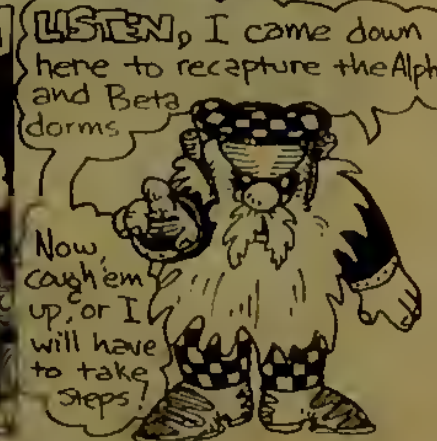 LISTEN, I came down
here to recapture the Alph
and Beta
dorms
Now,
cough 'em
up, or I
will have
to take
steps!